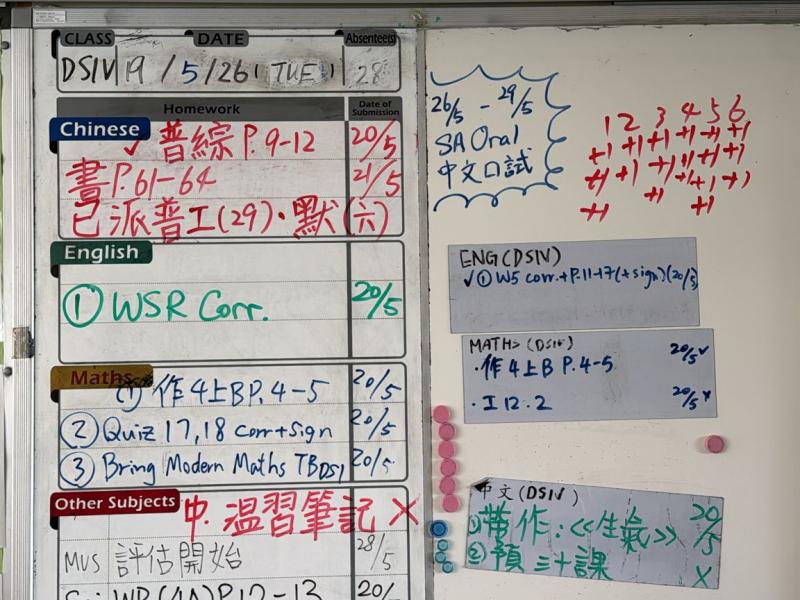 CLASS DATE Absentee(s)
DSIV 19/5/26 (TUE) 28
Homework Date of Submission
Chinese
✓ 普綜 P.9-12 20/5
書 P.61-64 21/5
已派普工(29)·默(六)
English
① WSR Corr. 20/5
Maths
(1) 作4上B P.4-5 20/5
② Quiz 17,18 corr+sign 20/5
③ Bring Modern Maths TB DS1 20/5
Other Subjects
中. 溫習筆記 X
MUS 評估開始 28/5
WB(4A)P.12-13 20/
26/5 - 29/5
SA Oral
中文口試
1 2 3 4 5 6
+1 +1 +1 +1 +1
+1 +1 +1 +1 +1
+1 +1 +1 +1 +1
+1 +1
ENG (DSIV)
✓① W5 corr.+P.11-17(+sign)(20/5)
MATHS (DSIV)
·作4上B P.4-5 20/5✓
·工12.2 20/5
中文(DSIV)
①帶作:<<生氣>> 20/5
②預 三十課 X